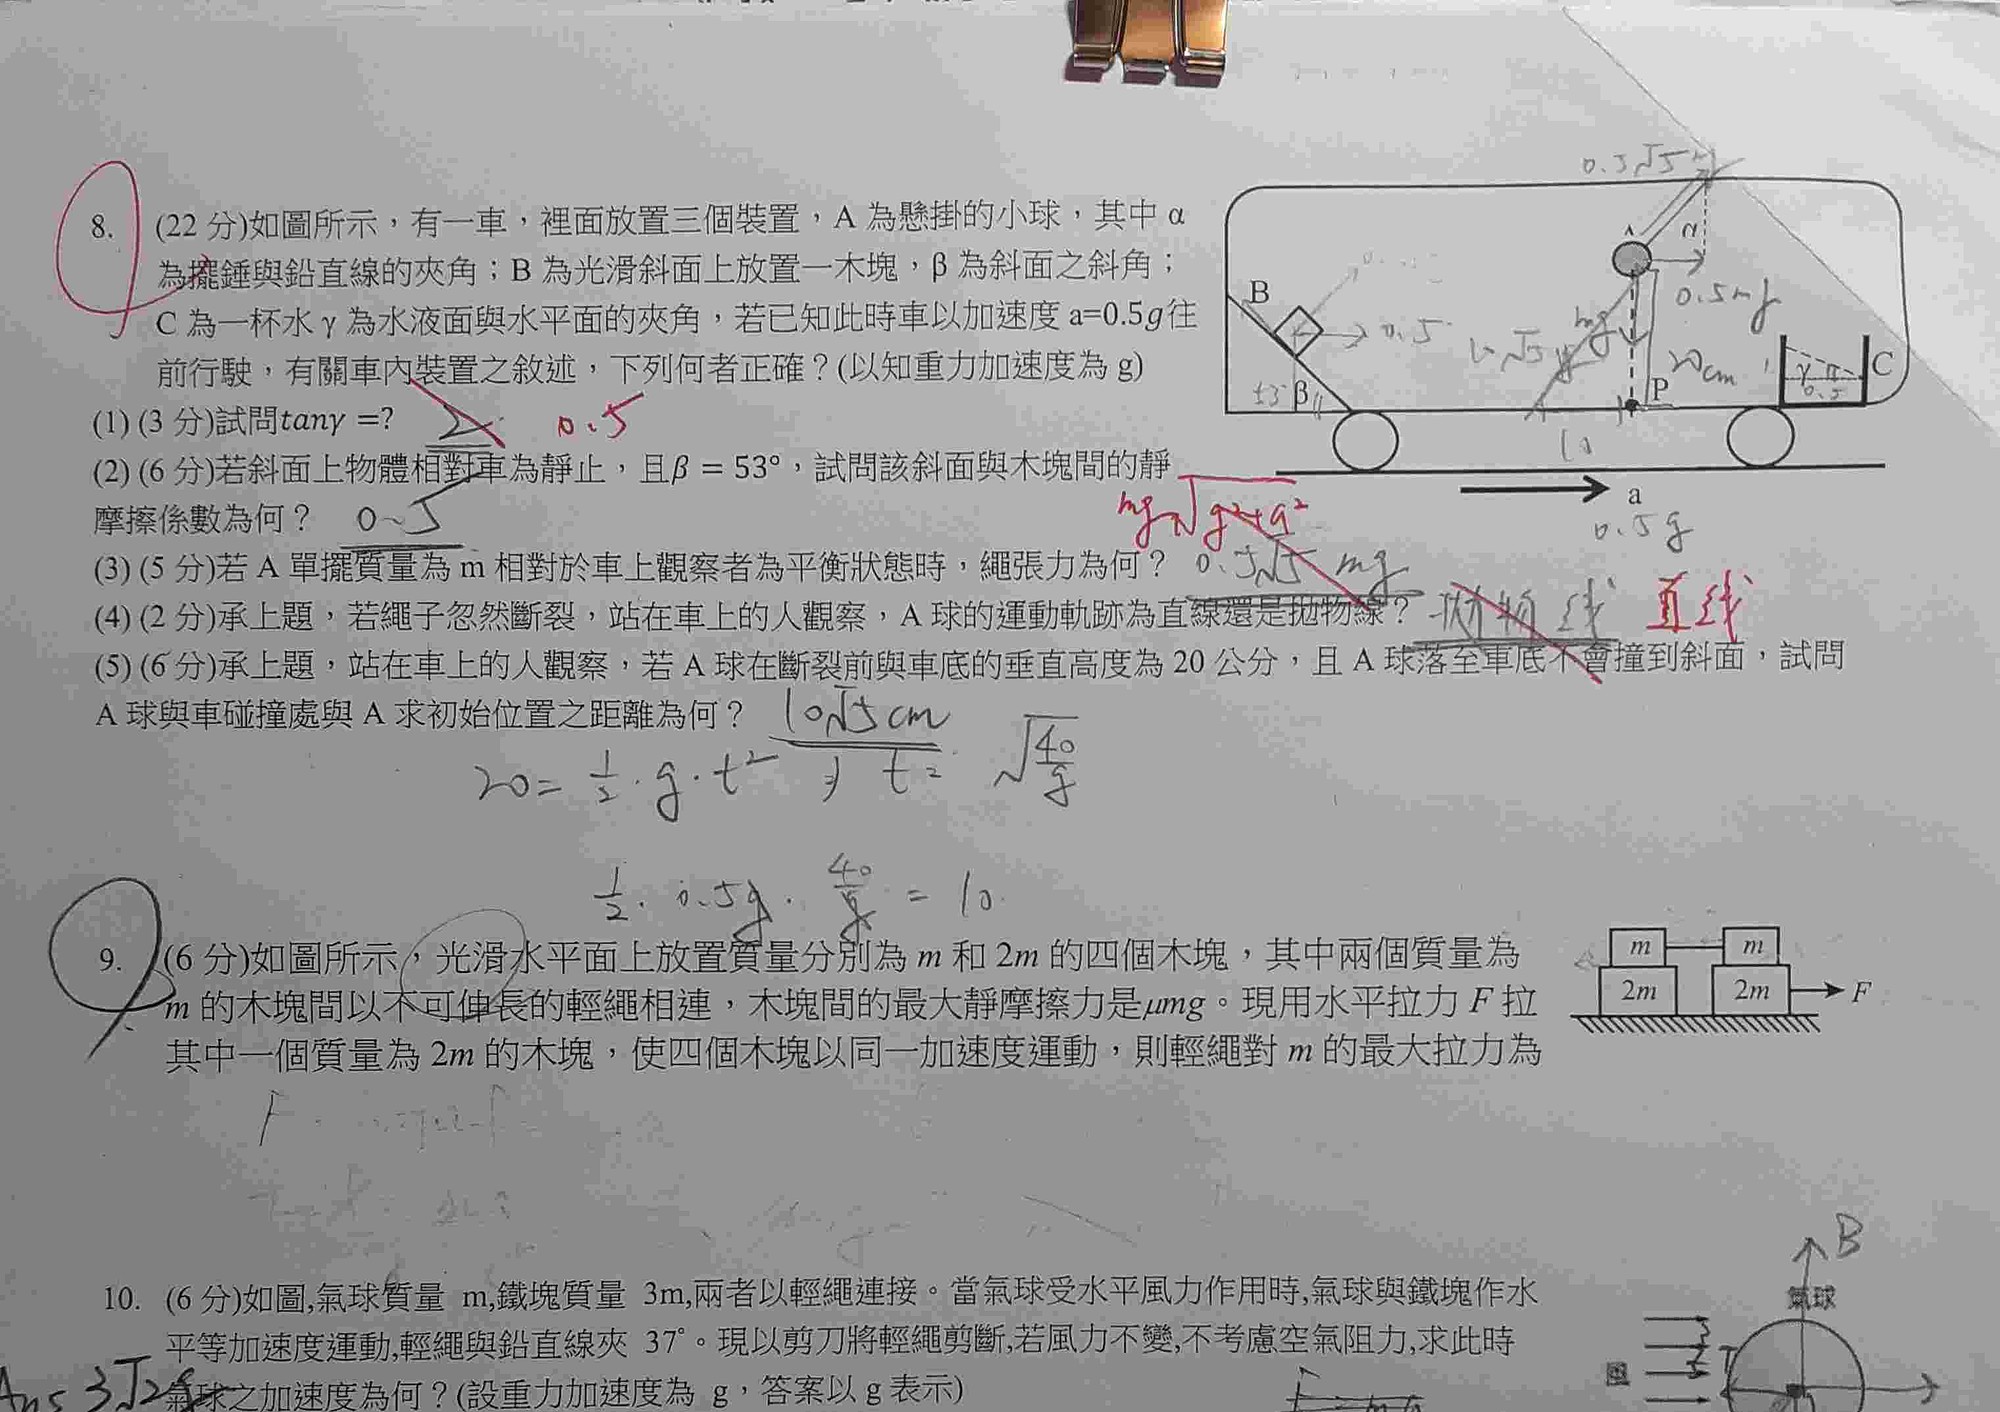 8. (22 分)如圖所示，有一車，裡面放置三個裝置，A 為懸掛的小球，其中 α
為擺錘與鉛直線的夾角；B 為光滑斜面上放置一木塊，β 為斜面之斜角；
C 為一杯水 γ 為水液面與水平面的夾角，若已知此時車以加速度 a=0.5g往
前行駛，有關車內裝置之敘述，下列何者正確？(以知重力加速度為 g)
(1) (3 分)試問tanγ =? 2 0.5
(2) (6 分)若斜面上物體相對車為靜止，且β = 53°，試問該斜面與木塊間的靜
摩擦係數為何？ 0.5
mg√g²+a²
(3) (5 分)若 A 單擺質量為 m 相對於車上觀察者為平衡狀態時，繩張力為何？ 0.5√5 mg
(4) (2 分)承上題，若繩子忽然斷裂，站在車上的人觀察，A 球的運動軌跡為直線還是拋物線？ 拋物线 直线
(5) (6 分)承上題，站在車上的人觀察，若 A 球在斷裂前與車底的垂直高度為 20 公分，且 A 球落至車底不會撞到斜面，試問
A 球與車碰撞處與 A 求初始位置之距離為何？ 10√5cm
20= 1/2 · g · t² ⇒ t= √40/g
1/2 · 0.5g · 40/g = 10
0.5√5
A
α
0.5mg
mg
B
0.5
20cm
γ
0.5
C
53°
β
P
10
a
0.5g
9. (6 分)如圖所示，光滑水平面上放置質量分別為 m 和 2m 的四個木塊，其中兩個質量為
m 的木塊間以不可伸長的輕繩相連，木塊間的最大靜摩擦力是μmg。現用水平拉力 F 拉
其中一個質量為 2m 的木塊，使四個木塊以同一加速度運動，則輕繩對 m 的最大拉力為
m m
2m 2m F
10. (6 分)如圖,氣球質量 m,鐵塊質量 3m,兩者以輕繩連接。當氣球受水平風力作用時,氣球與鐵塊作水
平等加速度運動,輕繩與鉛直線夾 37°。現以剪刀將輕繩剪斷,若風力不變,不考慮空氣阻力,求此時
氣球之加速度為何？(設重力加速度為 g，答案以 g 表示)
Ans 3√2g
B
氣球
風